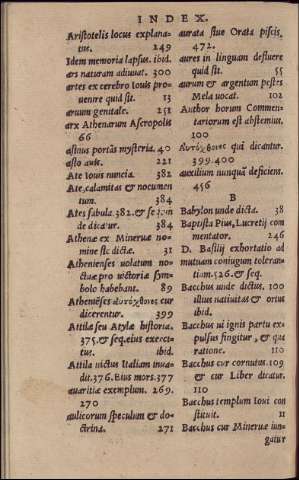 INDEX.
Aristotelis locus explana-
tus. 249
Idem memoria lapsus. ibid.
ars naturam adiuuat. 300
artes ex cerebro Iouis pro-
uenire quid sit. 13
aruum genitale. 251
arx Athenarum Acropolis
66
asinus portās mysteria. 40
asio auis. 221
Ate Iouis nuncia. 382
Ate, calamitas & nocumen
tum. 384
Ates fabula. 382. & seq. un
de dicatur. 384
Athenæ ex Mineruæ no-
mine sic dictæ. 31
Athenienses uolatum no-
ctuæ pro uictoriæ sym-
bolo habebant. 89
Atheniēses αυτόχθονες cur
dicerentur. 399
Attilæ seu Atylæ historia.
375. & seq. eius exerci-
tus. ibid.
Attila uictus Italiam inua-
dit. 376. Eius mors. 377
auaritiæ exemplum. 269.
270
aulicorum speculum & do-
ctrina. 271
aurata siue Orata piscis.
472.
aures in linguam defluere
quid sit. 55
aurum & argentum pestes
Mela uocat. 102
Author horum Commen-
tariorum est abstemius.
100
Αυτόχθονες qui dicantur.
399. 400
auxilium nunquā deficiens.
456
B
Babylon unde dicta. 38
Baptista Pius, Lucretij com
mentator. 246
D. Basilij exhortatio ad
mutuam coniugum toleran-
tiam. 526. & seq.
Bacchus unde dictus. 100
illius natiuitas & ortus
ibid.
Bacchus ui ignis partu ex-
pulsus fingitur, & qua
ratione. 110
Bacchus cur cornutus. 109
& cur Liber dicatur.
110
Bacchus templum Ioui con
stituit. 11
Bacchus cur Mineruæ iun-
gatur